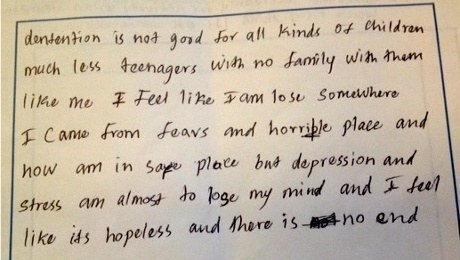 dentention is not good for all kinds of children
much less teenagers with no family with them
like me I Feel like I am lose Somewhere
I Came from fears and horrible place and
now am in safe place but depression and
stress am almost to loge my mind and I feel
like its hopeless and there is no end